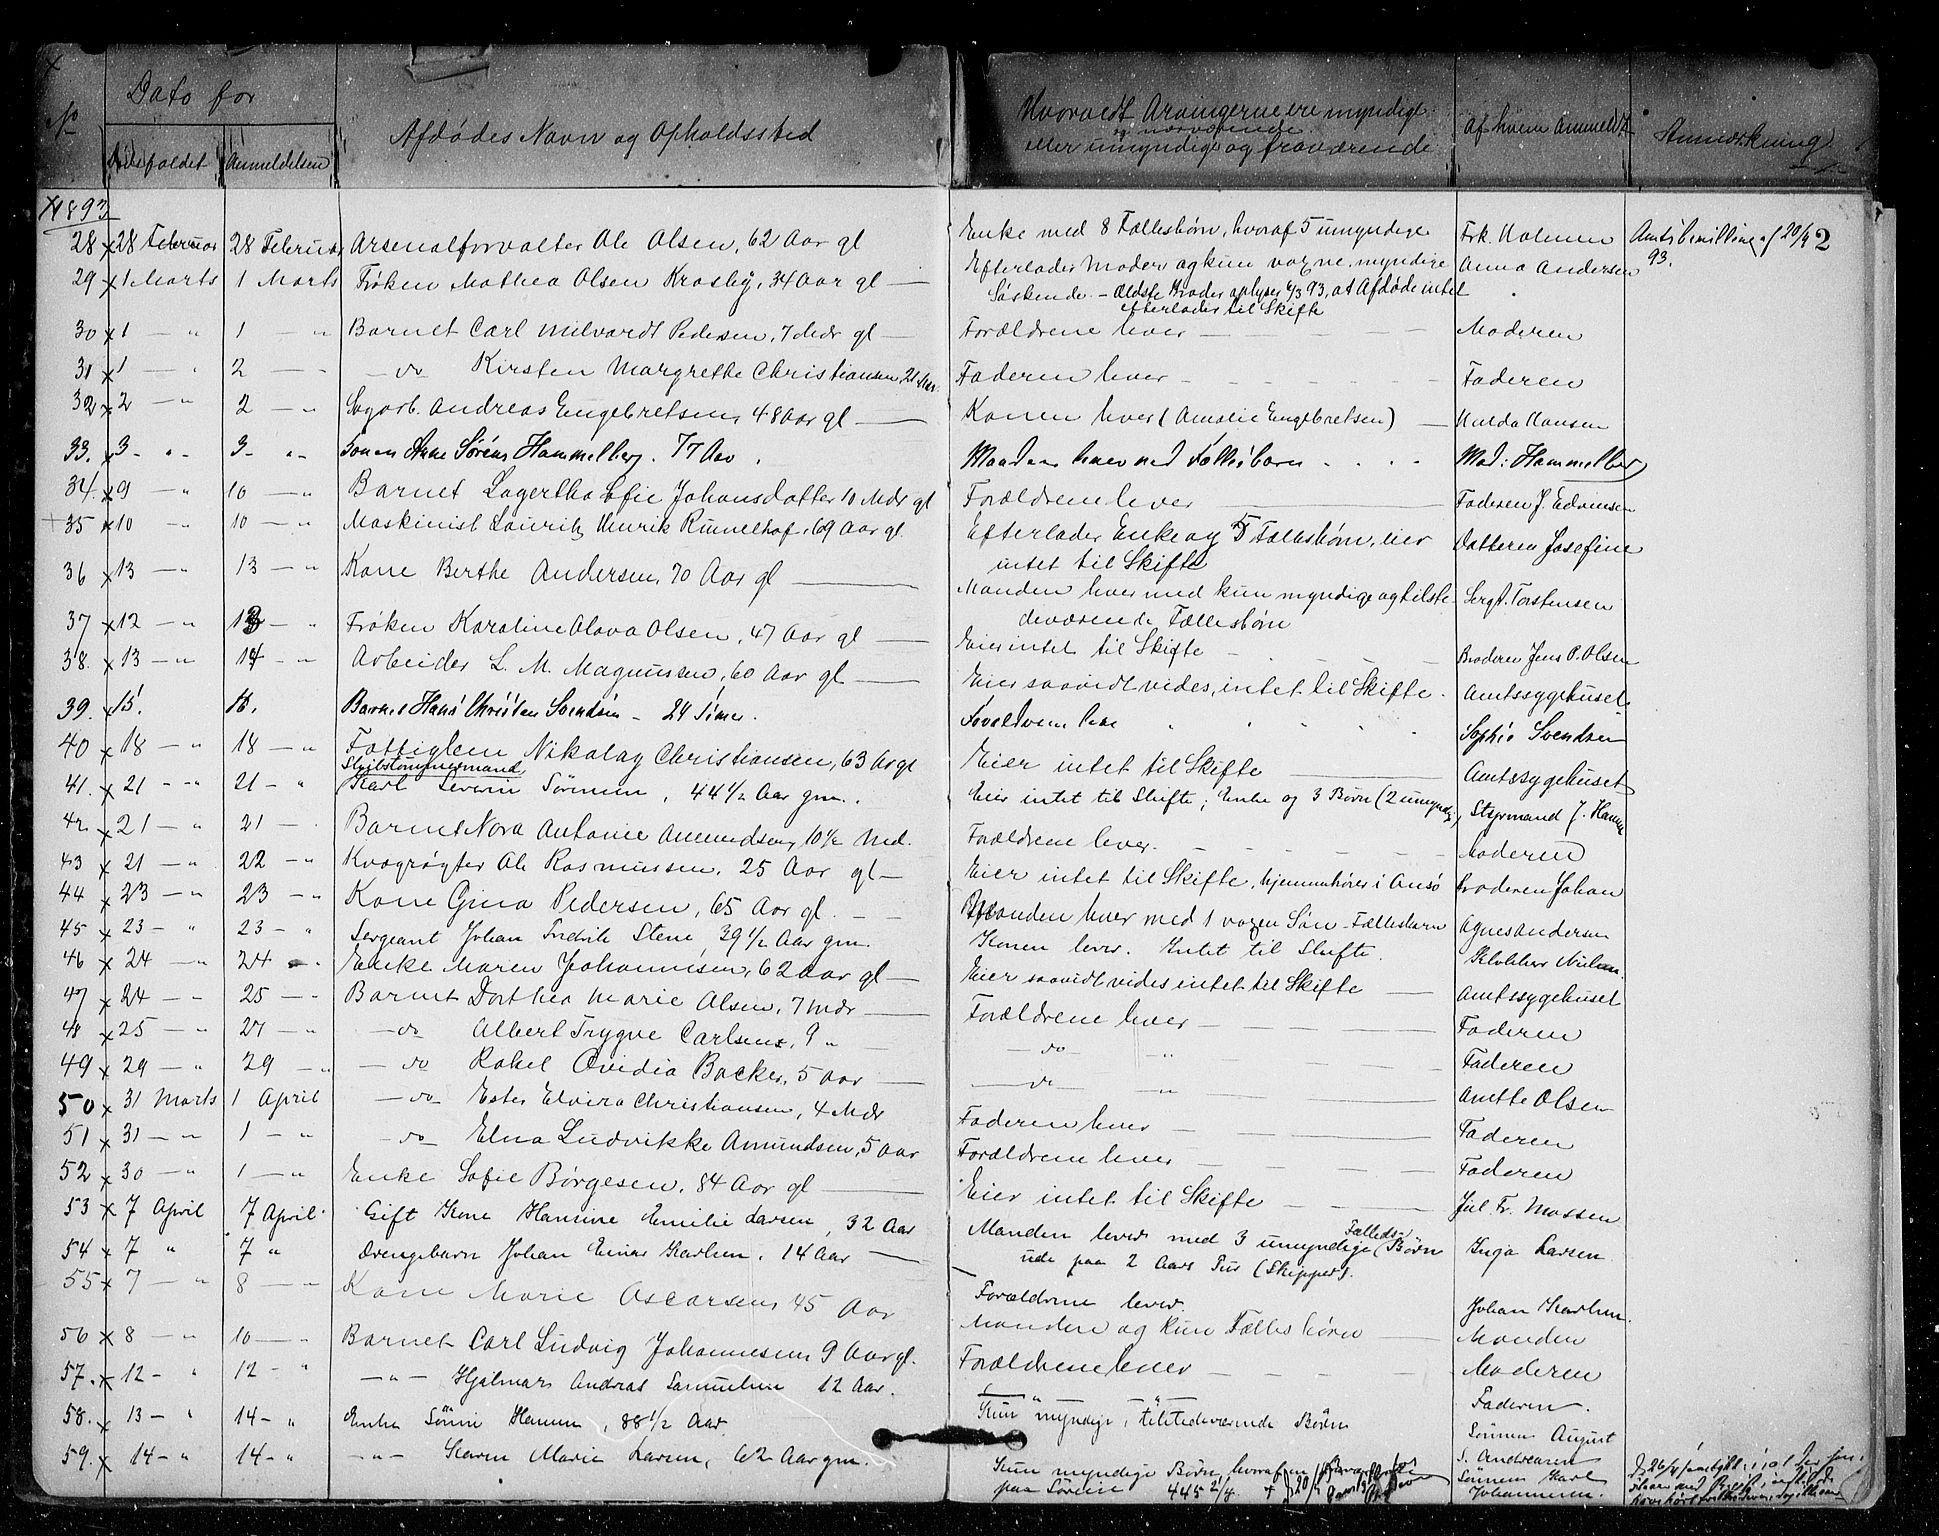 No
Dato for
Dødsfaldet Anmeldelsen
Afdødes Navn og Opholdssted
Hvorvidt Arvingerne ere myndige
og nærværende
eller umyndige og fraværende
Af hvem anmeldt
Anmærkning
2
1893
28 x 28 Februar 28 Februar Arsenalforvalter Ole Olsen, 62 Aar gl Enke med 8 Fællesbørn, hvoraf 5 umyndige Frk. Holmen Amtsbevilling af 20/4 93.
29 x 1 Marts 1 Marts Frøken Mathea Olsen Krosby, 34 Aar gl — Efterlader Moder og kun voxne, myndige Anna Andersen
Søskende. – Ældste Broder oplyser 4/3 93, at Afdøde intet
efterlader til Skifte
30 x 1 — " 1 — " Barnet Carl Milvardt Pedersen, 7 Mdr gl — Forældrene lever — Moderen
31 x 1 — " 2 — " — do Kirsten Margrethe Christiansen, Faderen lever Faderen
32 x 2 — " 2 — " Sagarb. Andreas Engebretsen, 48 Aar gl — Konen lever (Amalie Engebretsen) — Hulda Hansen
33. x 3 - " - 3 - " - Konen Anne Sørine Hammelberg. 77 Aar. Manden lever med Fællesbørn Mad: Hammelberg
34. x 9 — " 10 — " Barnet Lagertha Sofie Johansdatter 10 Mdr gl Forældrene lever — Faderen J. Edvinsen
35 x 10 " 10 — " Maskinist Lauritz Henrik Rummelhof, 69 Aar gl. Efterlader Enke og 5 Fællesbørn, eier Datteren Josefine
intet til Skifte
36 x 13 — " 13 — " Kone Berthe Andersen, 70 Aar gl — Manden lever med kun myndige og tilste- Sergt. Torstensen
deværende Fællesbørn
37 x 12 — " 13 — " Frøken Karoline Olava Olsen, 47 Aar gl — Eier intet til Skifte — Broderen Jens P. Olsen
38. x 13 — " 14 — " Arbeider L. M. Magnussen, 60 Aar gl — Eier saavidt vides, intet til Skifte. Amtssygehuset
39. x 15. Barnet Hans Christian Svendsen - 24 Timer. Forældrene lever Sophie Svendsen
40 x 18 — " 18 — " Fattiglem Nikolay Christiansen, 63 Aar gl Eier intet til Skifte — Amtssygehuset
Skibstømmermand
41. x 21 — " 21 - " Karl Severin Sørensen, 44 1/2 Aar gm. Eier intet til Skifte; Enke og 3 Børn (2 umyndige) Styrmand J. Hansen
42. x 21 — " 21 — Barnet Nora Antonie Amundsen, 10 1/2 Md. Forældrene lever. — Moderen
43 x 21 — " 22 — " Kvægrøgter Ole Rasmussen, 25 Aar gl — Eier intet til Skifte, hjemmehører i Onsø Broderen Johan
44 x 23 — " 23 — " Kone Gina Pedersen, 65 Aar gl. — Manden lever med 1 voxen Søn - Fællesbarn Agnes Andersen
45 x 23 — " 23 — " Sergeant Johan Fredrik Stene, 39 1/2 Aar gm. Konen lever. Intet til Skifte. Klokker Nielsen.
46 x 24 — " 24 — Enke Maren Johannesen, 62 Aar gl — Eier saavidt vides intet til Skifte — Amtssygehuset
47 x 24 — " 25 — " Barnet Dorthea Marie Olsen, 7 Mdr — Forældrene lever — Faderen
48 x 25 — " 27 — " — do Albert Trygve Carlsen, 9 " — — do — " Faderen
49 x 29 — " 29 — " — do Rakel Ovidia Backer, 5 Aar — — do — " Anette Olsen
50 x 31 Marts 1 April — do Ester Elvira Christiansen, 4 Mdr Faderen lever — Faderen
51 x 31 — " 1 — " — do Elna Ludvikke Amundsen, 5 Aar Forældrene lever — Faderen
52 x 30 — " 1 — " Enke Sofie Børgesen, 84 Aar gl — Eier intet til Skifte — Jul Fr. Mossen
53 x 7 April 7 April Gift Kone Hansine Emilie Larsen, 32 Aar Manden lever med 3 umyndige (Fælleds- Børn Inga Larsen.
ude paa 2 Aars Tur (Skipper).
54 x 7 " 7 " Drengebarn Johan Einar Karlsen, 14 Aar — Forældrene lever. Johan Karlsen.
55 x 7 — " 8 — " Kone Marie Oscarsen, 45 Aar Manden og kun Fællesbørn — Manden
56 x 8 — " 10 — " Barnet Carl Ludvig Johannesen, 9 Aar gl. Forældrene lever — Moderen
57. x 12 - " 12 - " — " — Hjalmar Andreas Samuelsen 12 Aar. — " — " Faderen.
58. x 13 — " 14 - " Enke Sørine Hansen, 88 1/2 Aar. Kun myndige, tilstedeværende Børn Sønnen August
S. Andreasen
59. x 14 - " 14 - " — " — Karen Marie Larsen, 62 Aar gm. Kun myndige Børn, hvoraf en Sønnen Karl
paa Søreise 445 2/4 Johannesen.